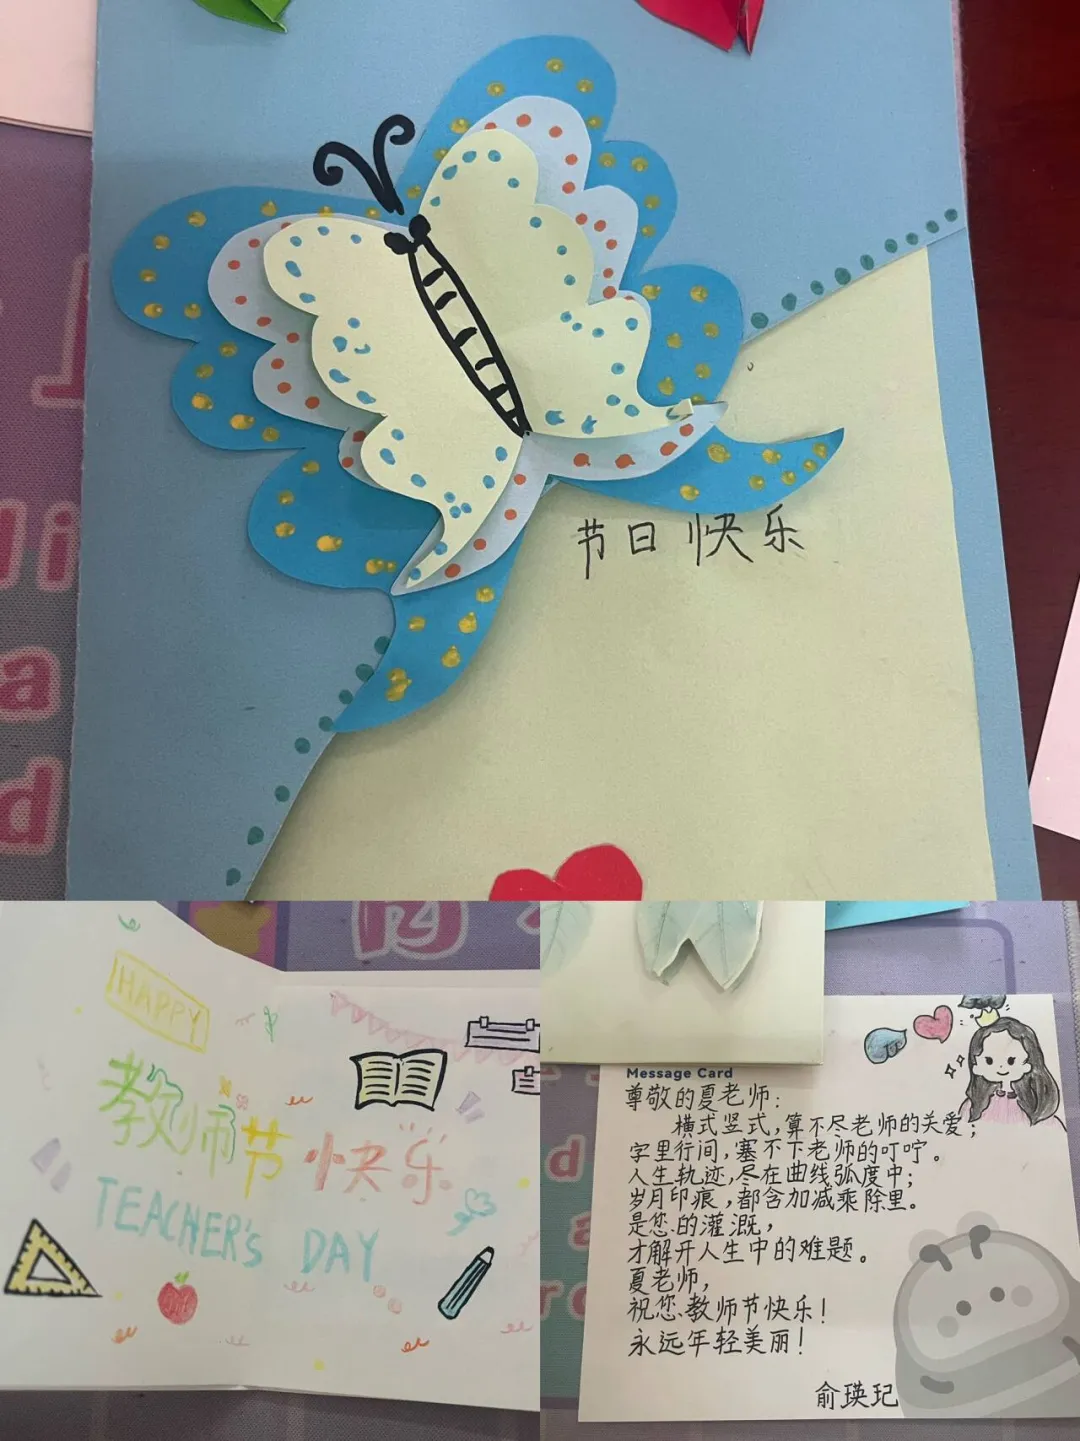 节日快乐
HAPPY
教师节快乐
TEACHER'S DAY
Message Card
尊敬的夏老师:
横式竖式,算不尽老师的关爱;
字里行间,塞不下老师的叮咛。
人生轨迹,尽在曲线弧度中;
岁月印痕,都含加减乘除里。
是您的灌溉,
才解开人生中的难题。
夏老师,
祝您教师节快乐!
永远年轻美丽!
俞瑛玘